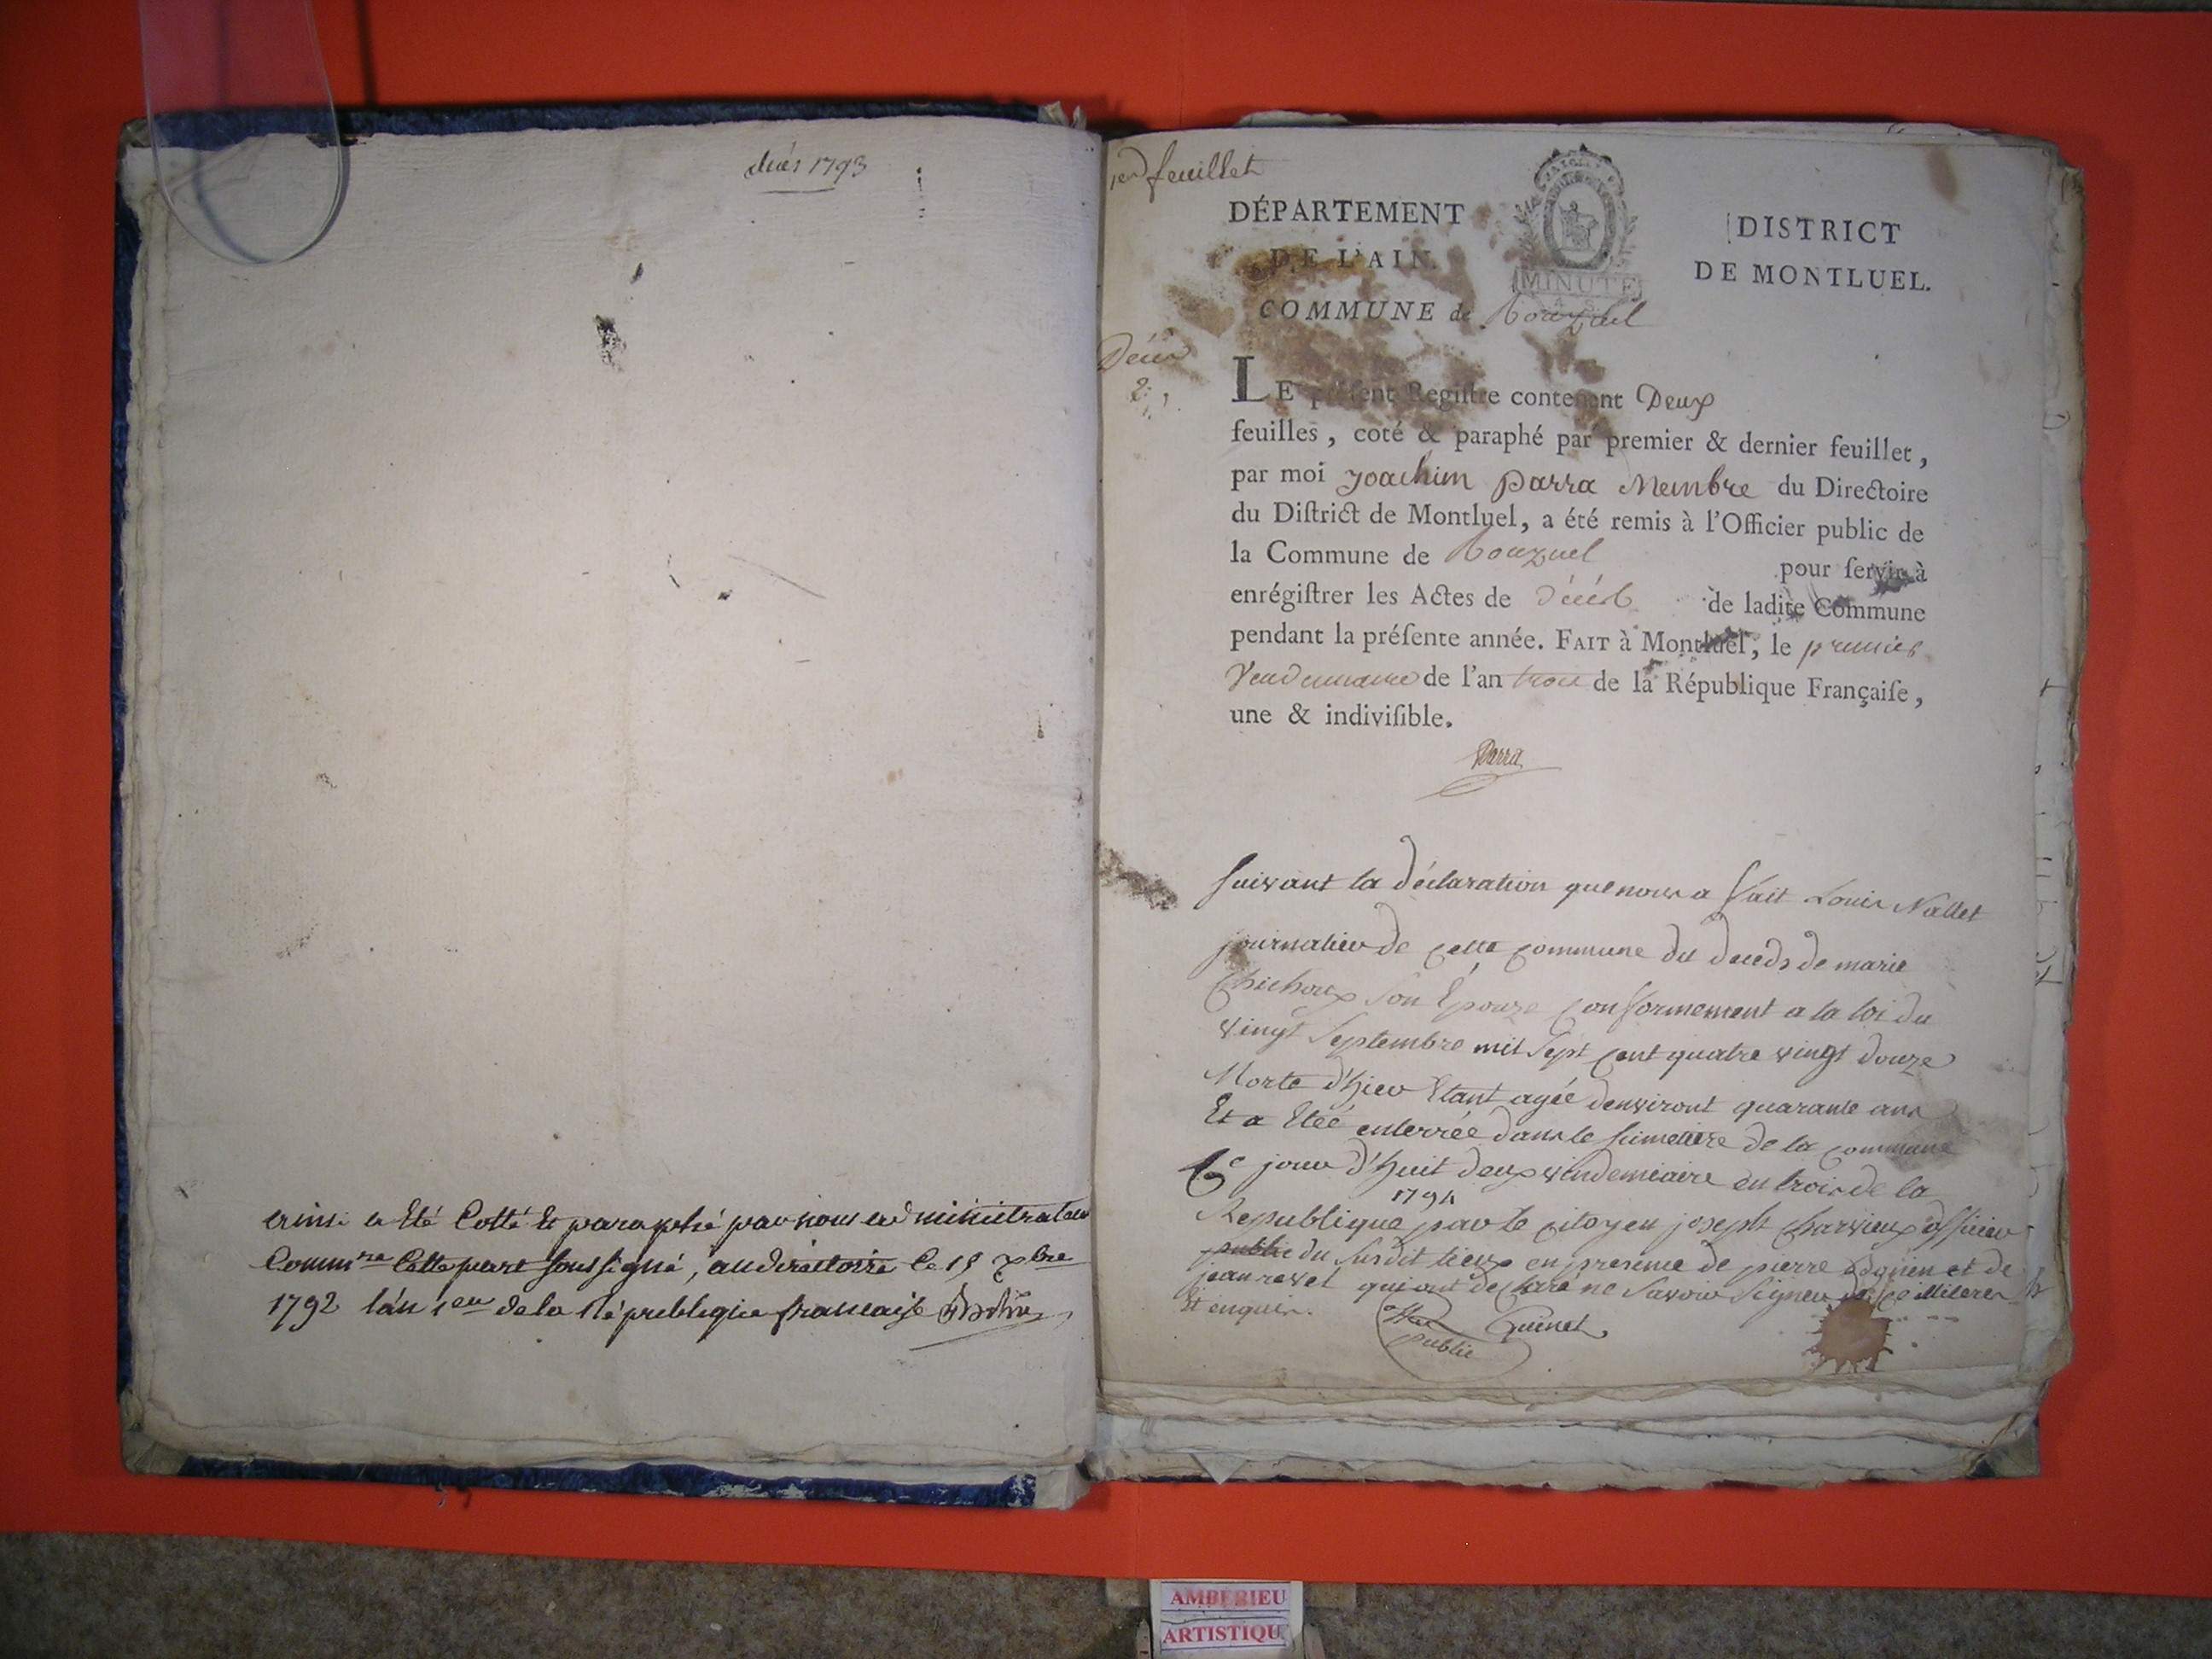 décès 1793
ainsi a été Cotté et paraphé par nous administrateur
Comm^re cette part soussigné, au directoire ce 15 xbre
1792 l'an 1er de la République française
1er feuillet
DÉPARTEMENT
DE L'AIN.
MINUTE
DISTRICT
DE MONTLUEL.
COMMUNE de Rouzuel
Décès
LE préſent Regiſtre contenant Deux
feuilles, coté & paraphé par premier & dernier feuillet,
par moi Joachim Parra Membre du Directoire
du Diſtrict de Montluel, a été remis à l'Officier public de
la Commune de Rouzuel pour ſervir à
enrégiſtrer les Actes de décès de ladite Commune
pendant la préſente année. FAIT à Montluel, le premier
Vendemiaire de l'an trois de la République Françaiſe,
une & indiviſible.
Parra
Suivant la déclaration que nous a fait Louis Nallet
journalier de cette commune du deceds de marie
Chichoux son Epouze conformement a la loi du
vingt Septembre mil Sept cent quatre vingt douze
Morte d'hier Etant agée denviront quarante ans
Et a Etéé enterrée dans le simetiere de la commune
Ce jour d'huit deux vindemiaire en trois de la
1794
Republique par le citoyen joseph Charvieux officier
public du susdit lieux en presence de pierre et de
jean revel qui ont declaré ne Savoir Signer de ce
Et enquis. Guinet
public
AMBERIEU
ARTISTIQU